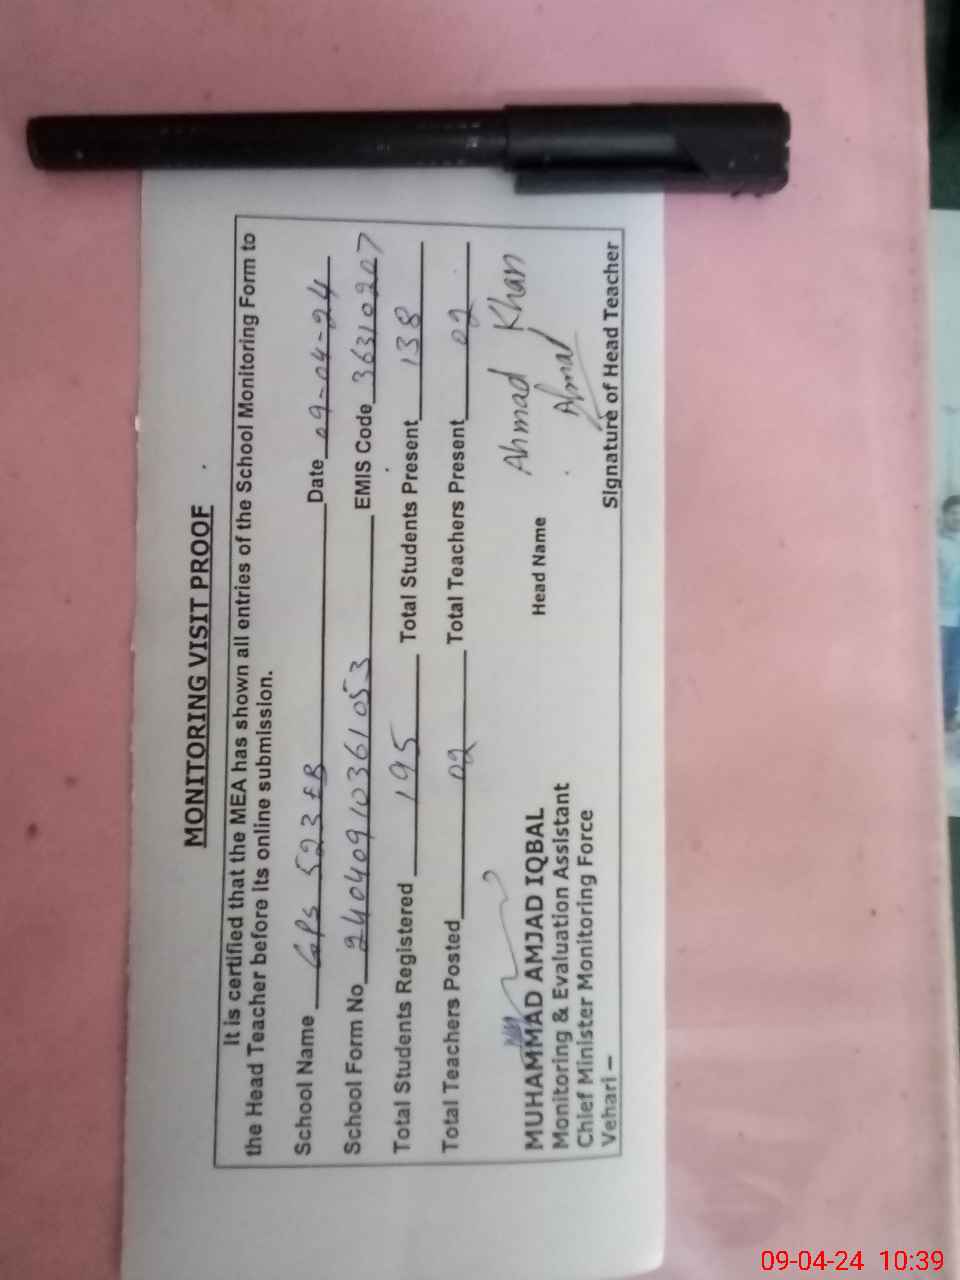 MONITORING VISIT PROOF
It is certified that the MEA has shown all entries of the School Monitoring Form to
the Head Teacher before its online submission.
School Name GPS 523 EB Date 09-04-24
School Form No 24040910361053 EMIS Code 36310207
Total Students Registered 195 Total Students Present 138
Total Teachers Posted 02 Total Teachers Present 02
Ahmad Khan
MUHAMMAD AMJAD IQBAL Head Name
Monitoring & Evaluation Assistant Ahmad
Chief Minister Monitoring Force
Vehari – Signature of Head Teacher
09-04-24 10:39